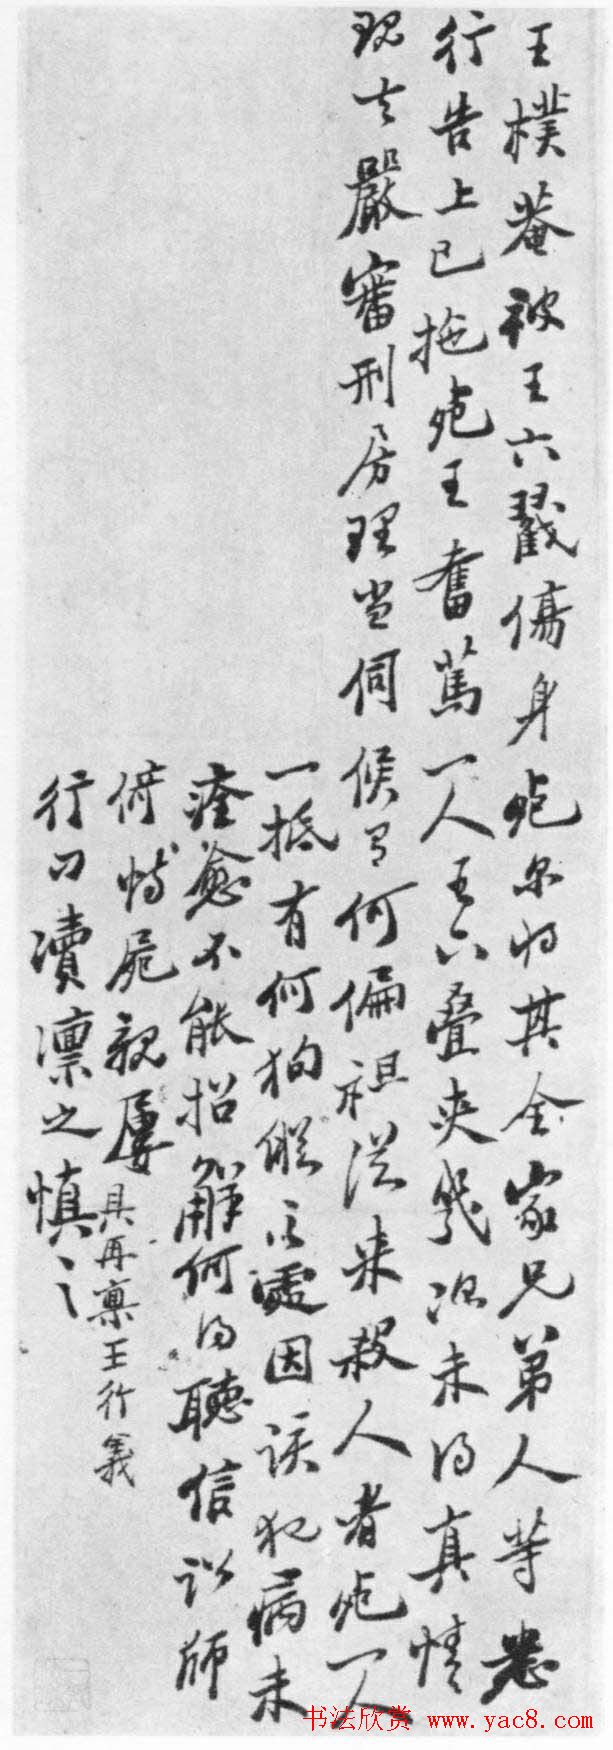 王樸菴被王六戳傷身死尔将其全家兄弟人等悉
行告上已拖死王奮篤一人王六叠夾幾次未得真情
現在嚴審刑房理当伺候有何偏袒從来殺人者死一人
一抵有何狥縱之處因該犯病未
痊愈不能招解何得聽信訟師
倚恃屍親屢
具再禀王行義
行刁瀆凛之慎之
书法欣赏 www.yac8.com